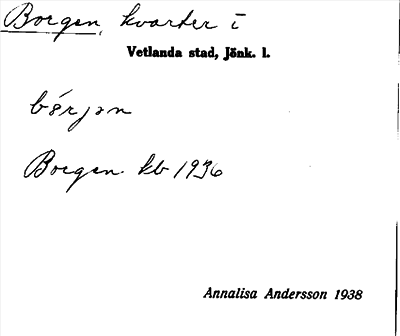 Borgen, kvarter i
Vetlanda stad, Jönk. l.
bórjan
Borgen. kb 1936
Annalisa Andersson 1938